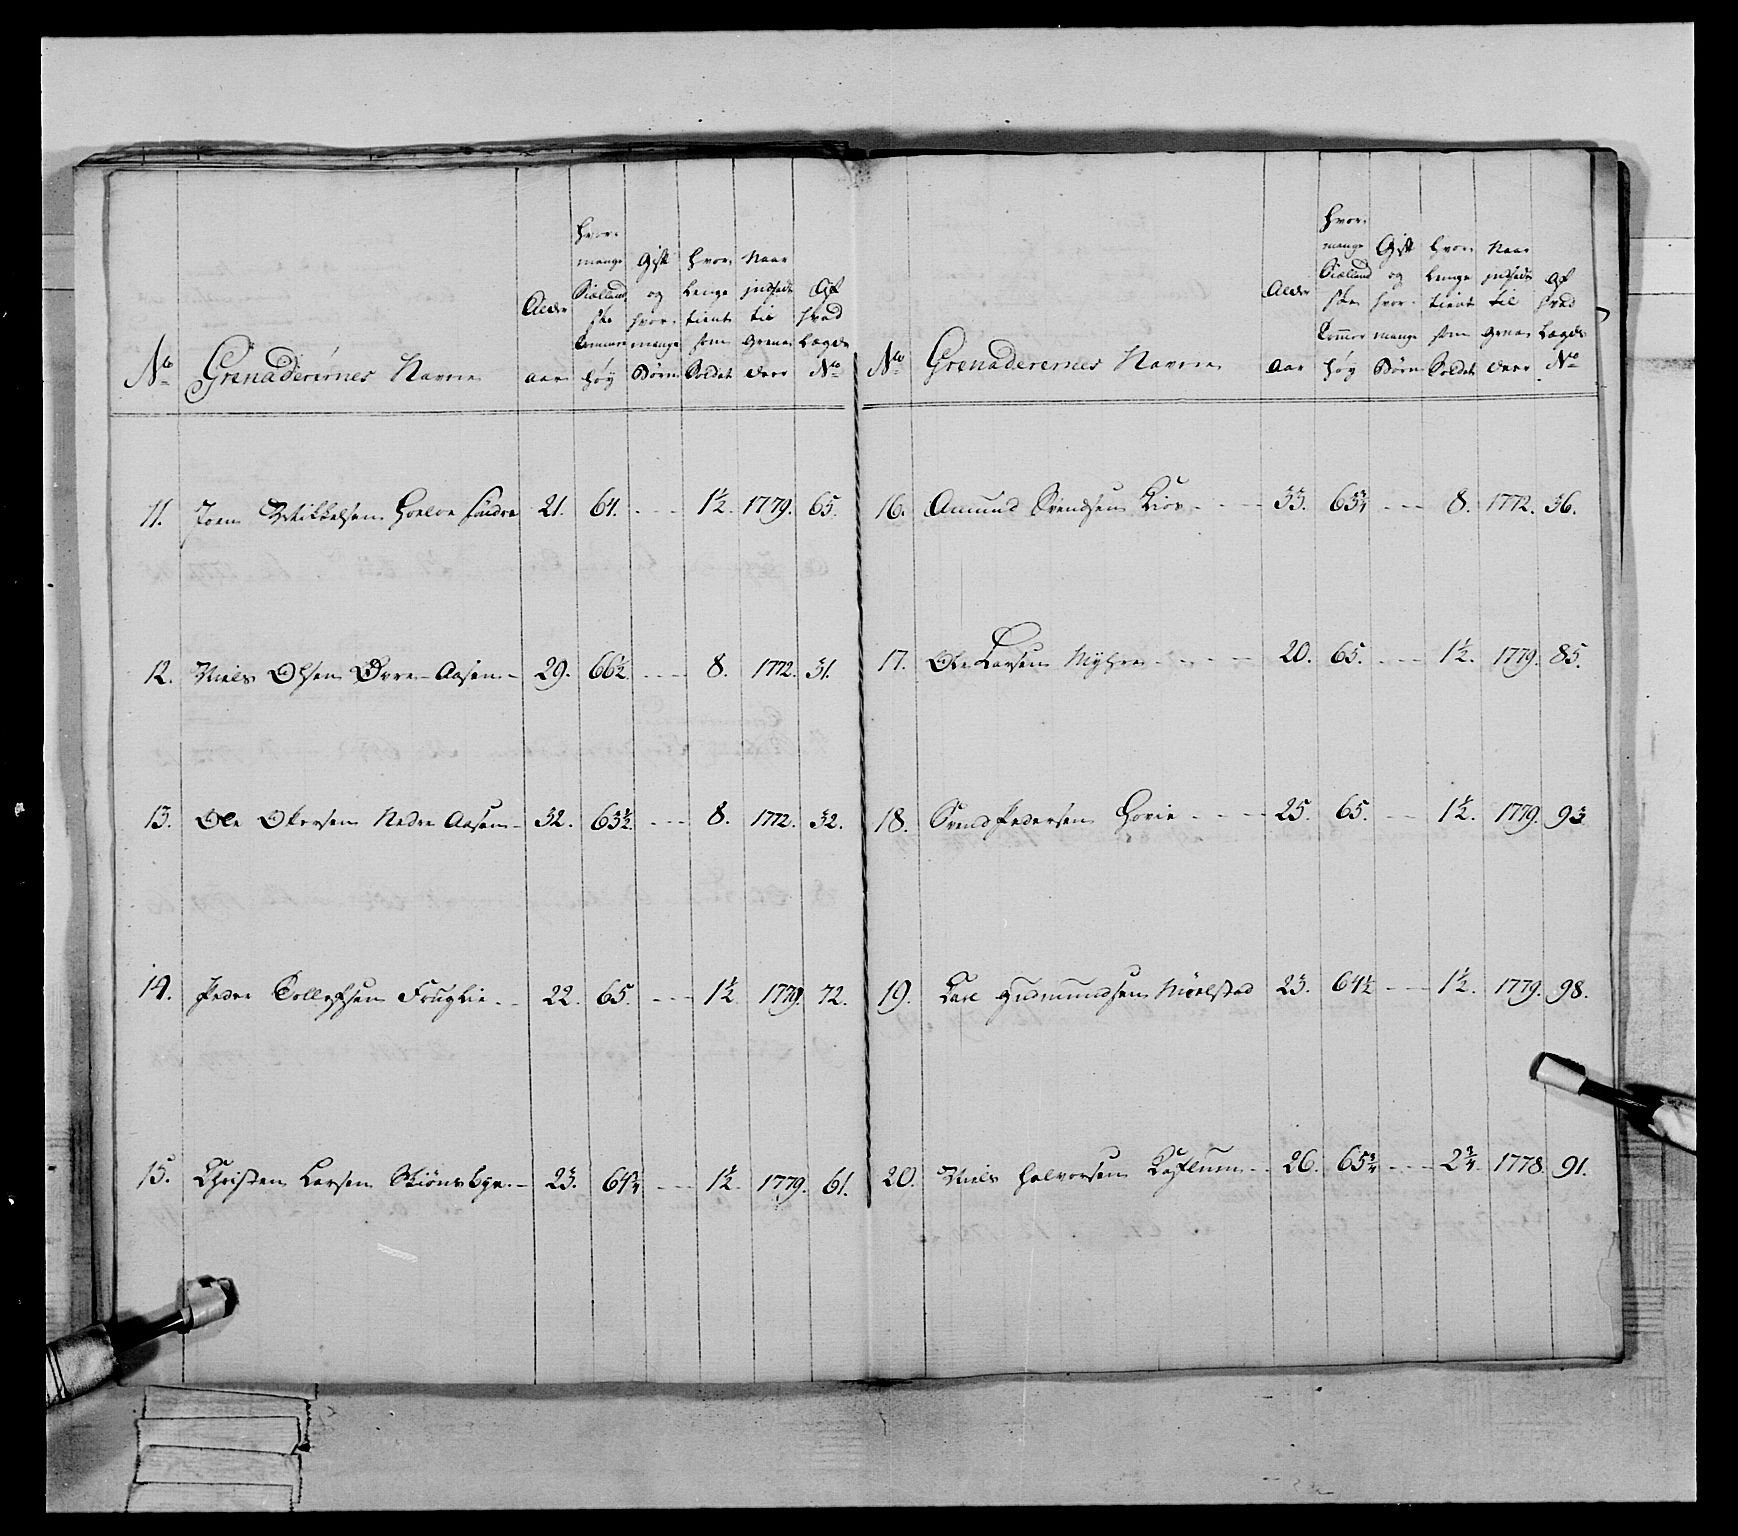 No
Grenaderernes Navne
Alder aar
Hvor mange Siælandske Tommer høy
Gift og hvor mange Børn
Hvor lenge tient som Soldat
Naar indsadt til Grenadeer
Af hvad Lægds No
11. Joen Mikkelsen Hoeloe Søndre 21. 64. - - - 1½. 1779. 65.
12. Niels Olsen Øvre-Aasen - 29. 66½. - - - 8. 1772. 31.
13. Ole Olersen Nedre Aasen - 32. 63½. - - - 8. 1772. 32.
14. Peder Tollefsen Fouglie - - 22. 65. - - - 1½. 1779. 72.
15. Christen Larsen Skiønsbye - - 23. 64¾ - - - 1½. 1779. 61.
No
Grenaderernes Navne
Alder Aar
Hvor mange Siælandske Tommer høy
Gift og hvor mange Børn
Hvor lenge tient som Soldat
Naar indsadt til Grenadeer
Af hvad Lægds No
16. Amund Svendsen Lior - - - - 33. 63¾ - - - 8. 1772. 36.
17. Ole Larsen Myhre - - - - 20. 65. - - - 1½. 1779. 85.
18. Svend Pedersen Hovie - - - - 25. 65. - - 1½. 1779. 93
19. Lars Gudmundsen Mørlstad 23. 64½ - - - 1½. 1779. 98.
20. Niels Halvorsen - - 26. 65¾ - - - 2¾. 1778. 91.